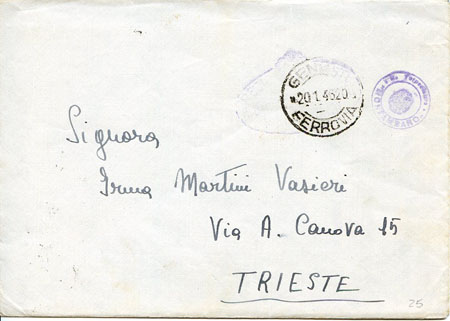 GENOVA
20.1.43 20
FERROVIA
Signora
Irma Martini Vasieri
Via A. Canova 15
TRIESTE
25